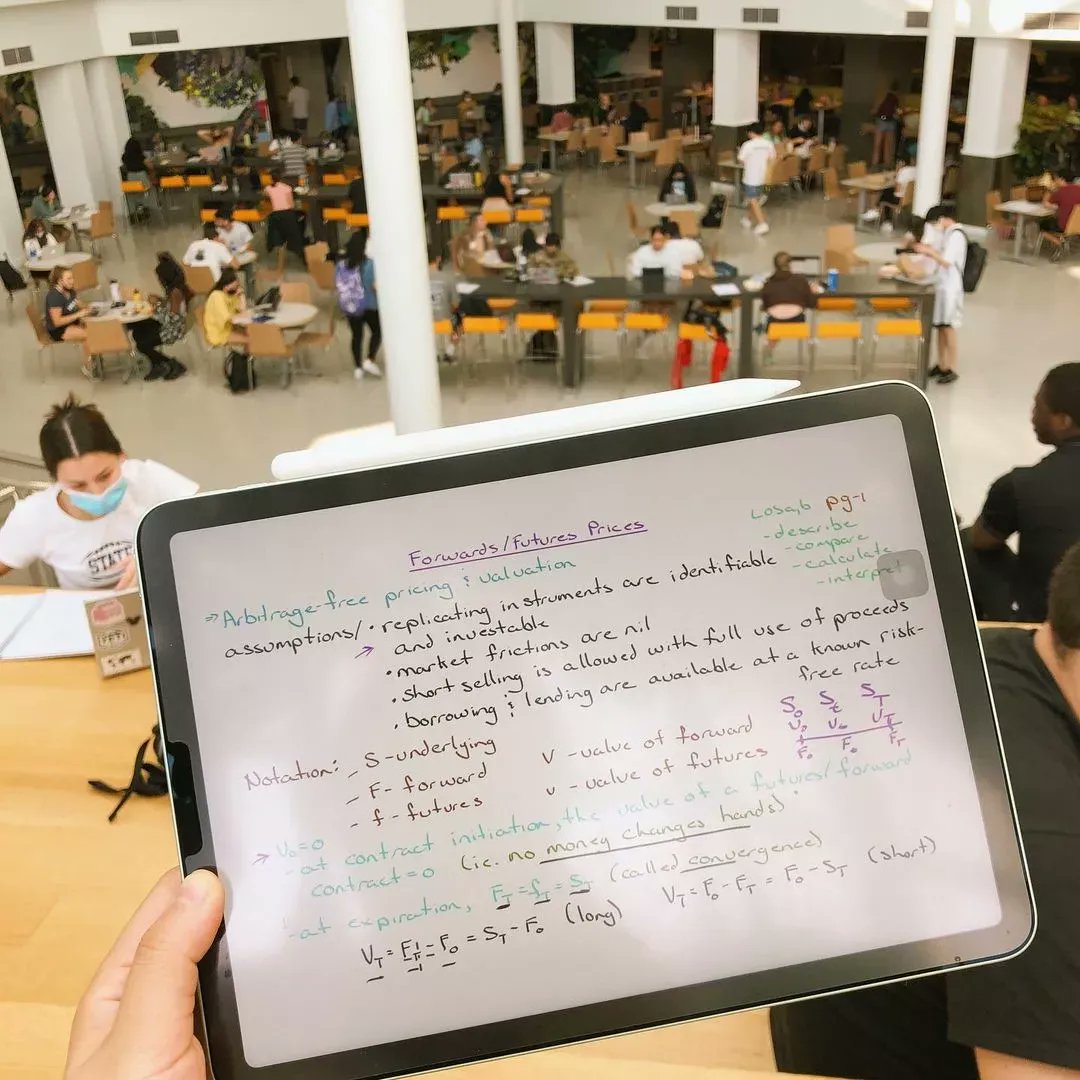 Forwards/Futures Prices
LOSa,b pg-1
- describe
- compare
- calculate
- interpret
⇒ Arbitrage-free pricing & valuation
assumptions/ • replicating instruments are identifiable
and investable
• market frictions are nil
• short selling is allowed with full use of proceeds
• borrowing & lending are available at a known risk-
free rate
Notation: - S-underlying
- F- forward
- f- futures
V - value of forward
v - value of futures
S₀ Sₜ S_T
V₀ Vₜ V_T
F₀ F₀ F_T
→ V₀=0
- at contract initiation, the value of a futures/forward
contract = 0 (ie. no money changes hands).
- at expiration, F_T = f_T = S_T (called convergence)
V_T = F_T - F₀ = S_T - F₀ (long) V_T = F₀ - F_T = F₀ - S_T (short)
STATE